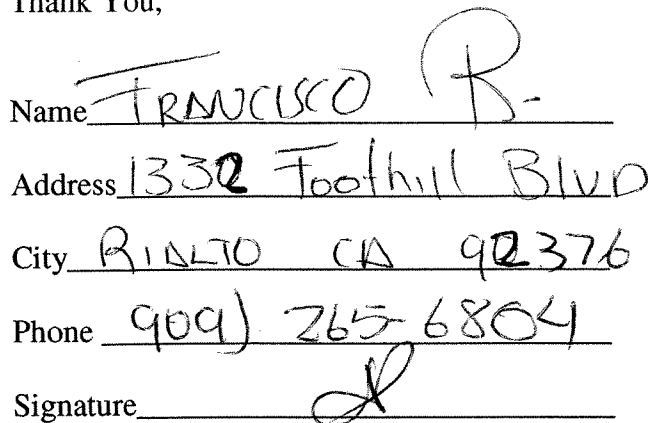 Thank You,
Name FRANCISCO R.
Address 1332 Foothill Blvd
City RIALTO CA 92376
Phone 909) 265-6804
Signature